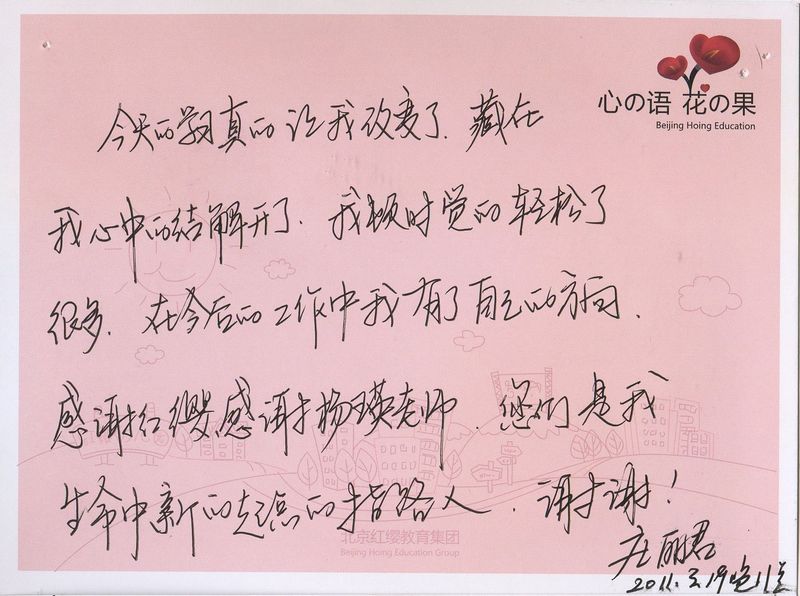 心の语 花の果
Beijing Hoing Education
今天的学习真的让我改变了.藏在
我心中的结解开了.我顿时觉的轻松了
很多.在今后的工作中我有了自己的方向.
感谢红缨感谢杨瑛老师.您们是我
生命中新的起点的指路人.谢谢!
庄丽君
2011.3.19晚11点
北京红缨教育集团
Beijing Hoing Education Group